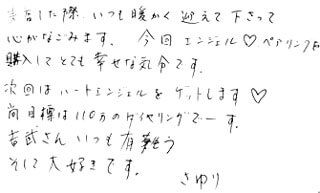 した際、いつも暖かく迎えて下さって
心がなごみます。今回エンジェル♡ペアリングを
購入してとても幸せな気分です。
次回はハートエンジェルをゲットします♡
尚目標は110万のダイヤリングでーす。
吉武さんいつも有難とう
そして大好きです。
さゆり